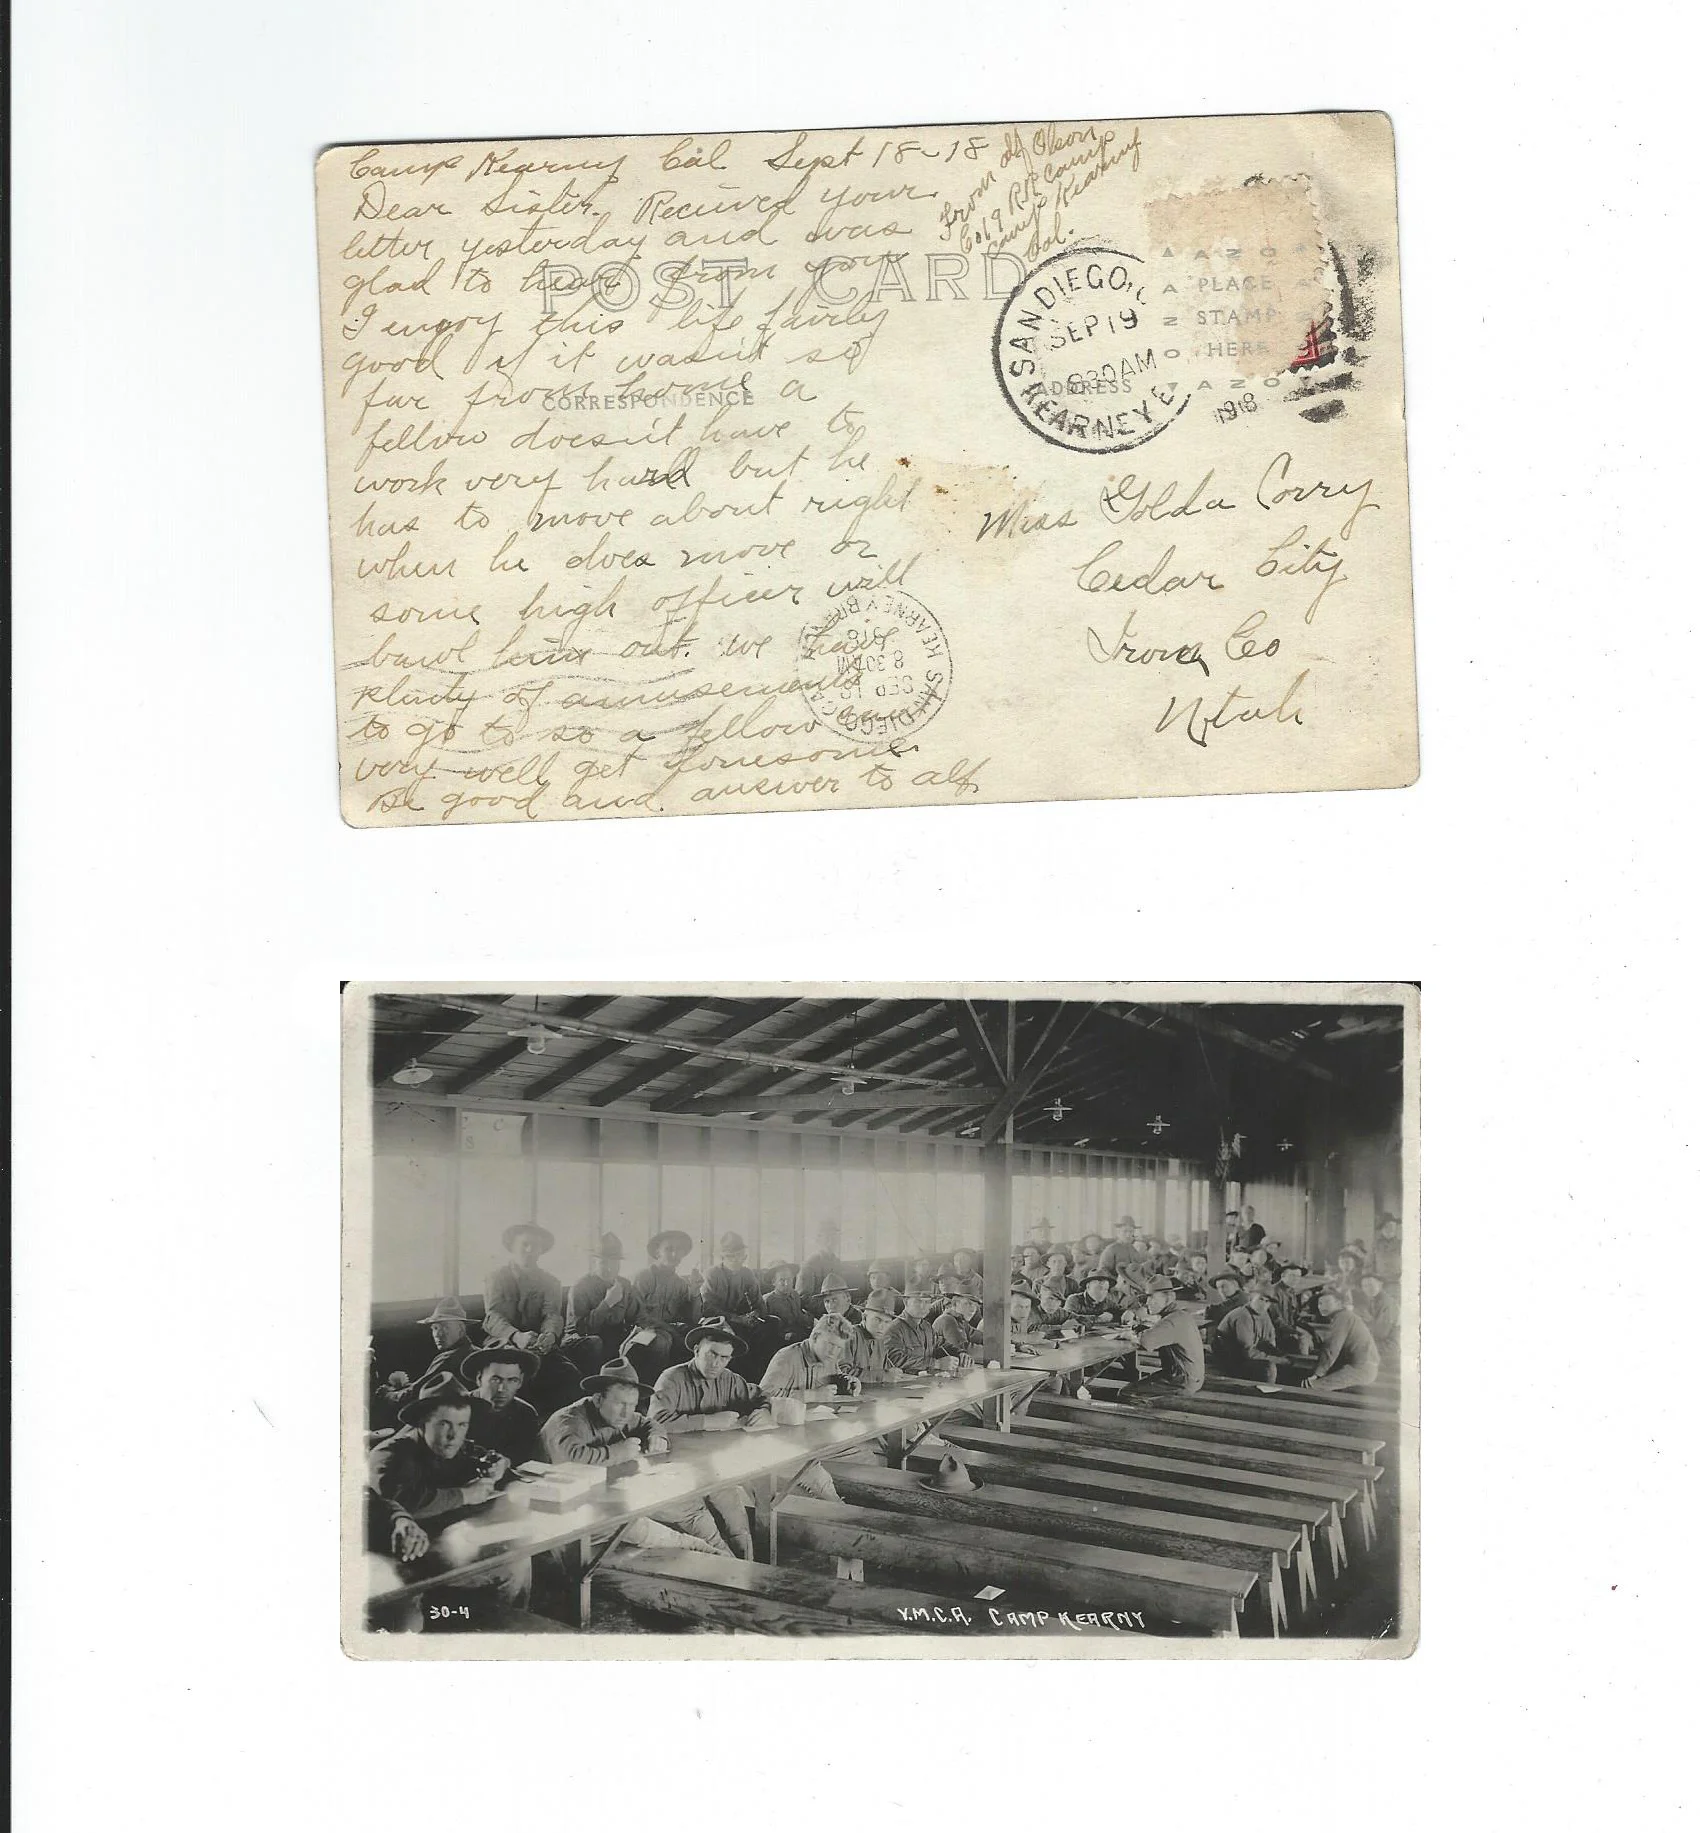 Camp Kearny Cal Sept 18-18
Dear Sister. Recieved your
letter yesterday and was
glad to hear from you
I enjoy this life fairly
good if it wasn't so
far from home a
fellow doesn't have to
work very hard but he
has to move about right
when he does move or
some high officer will
bawl him out. we have
plenty of amusements
to go to so a fellow
very well get lonesome.
Be good and answer to alf
From Olson
Co 19 Camp
Camp Kearny
Cal.
POST CARD
CORRESPONDENCE
ADDRESS
AZO
PLACE
STAMP
HERE
AZO
SAN DIEGO, C
SEP 19
830AM
1918
KEARNEY
SAN DIEGO CA
SEP 18
8.30AM
1918
KEARNEY BRANCH
Miss Golda Corry
Cedar City
Iron Co
Utah
30-4
Y.M.C.A. CAMP KEARNY